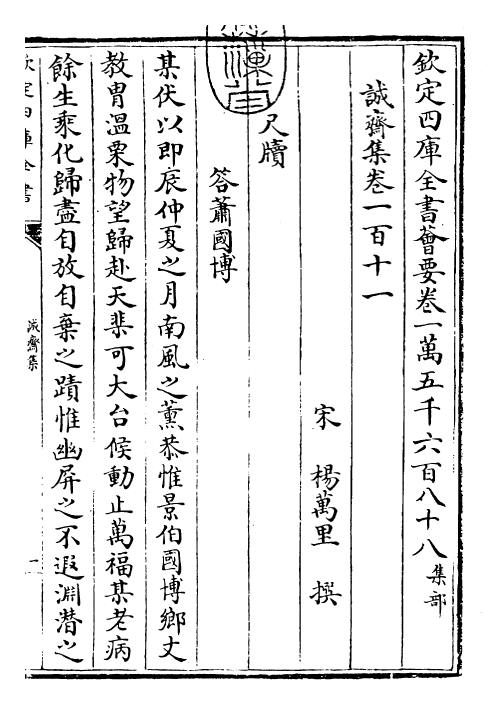 欽定四庫全書薈要卷一萬五千六百八十八集部
誠齋集卷一百十一
宋　楊萬里　撰
尺牘
答蕭國博
某伏以即辰仲夏之月南風之薰恭惟景伯國博鄉丈
教冑溫栗物望歸赴天棐可大台候動止萬福某老病
餘生乘化歸盡自放自棄之蹟惟幽屏之不遐淵潛之
欽定四庫全書
誠齋集
一